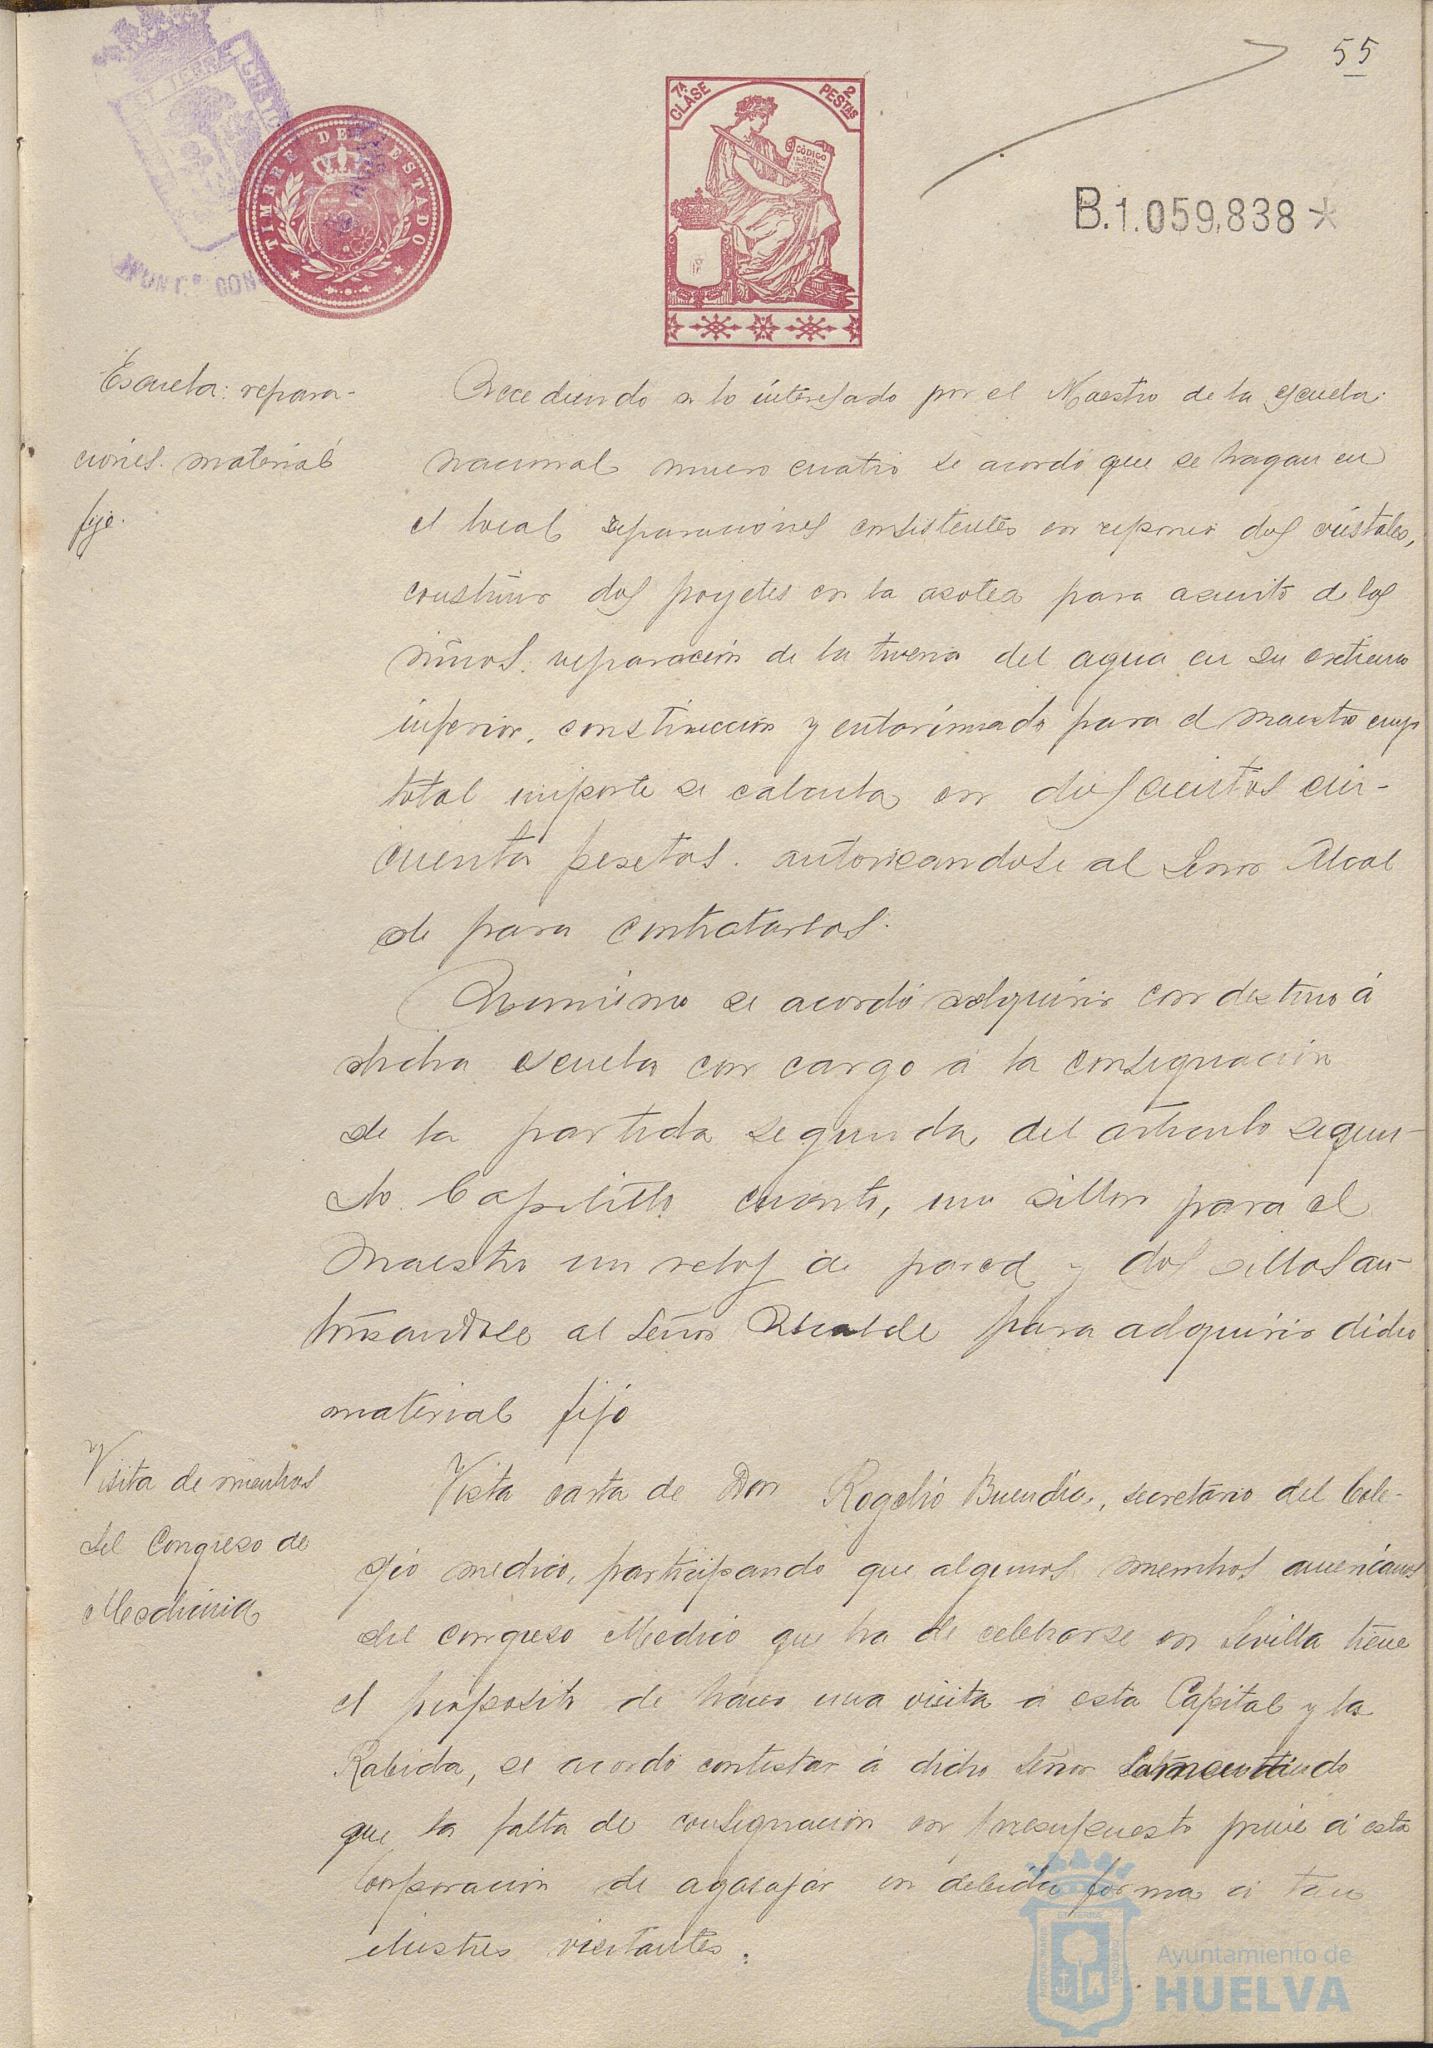 55
TIMBRE DEL ESTADO
7ª CLASE
2 PESTAS
CÓDIGO
B.1.059,838*
Escuela: repara-
ciones. material
fijo.
Accediendo a lo interesado por el Maestro de la escuela
nacional número cuatro se acordó que se hagan en
el local reparaciones consistentes en reponer dos cristales,
construir dos poyetes en la azotea para asiento de los
niños, reparación de la tuvería del agua en su extremo
inferior, construccion y entarimado para el maestro cuyo
total importe se calcula en doscientos cin-
cuenta pesetas. autorizandose al Señor Alcal
de para contratarlos.
Asimismo se acordó adquirir con destino á
dicha escuela con cargo á la consignación
de la partida segunda del articulo segun-
do Capitulo cuarto, un sillon para el
maestro un reloj de pared y dos sillas au-
torizandose al Señor Alcalde para adquirir dicho
material fijo
Visita de miembros
del Congreso de
Medicina
Vista carta de Don Rogelio Buendía, secretario del Cole-
gio medico, participando que algunos miembros americanos
del congreso Medico que ha de celebrarse en Sevilla tiene
el proposito de hacer una visita á esta Capital y la
Rabida, se acordó contestar á dicho Señor
que la falta de consignación en presupuesto prive á esta
Corporación de agasajar en debida forma á tan
ilustres visitantes.
Ayuntamiento de
HUELVA